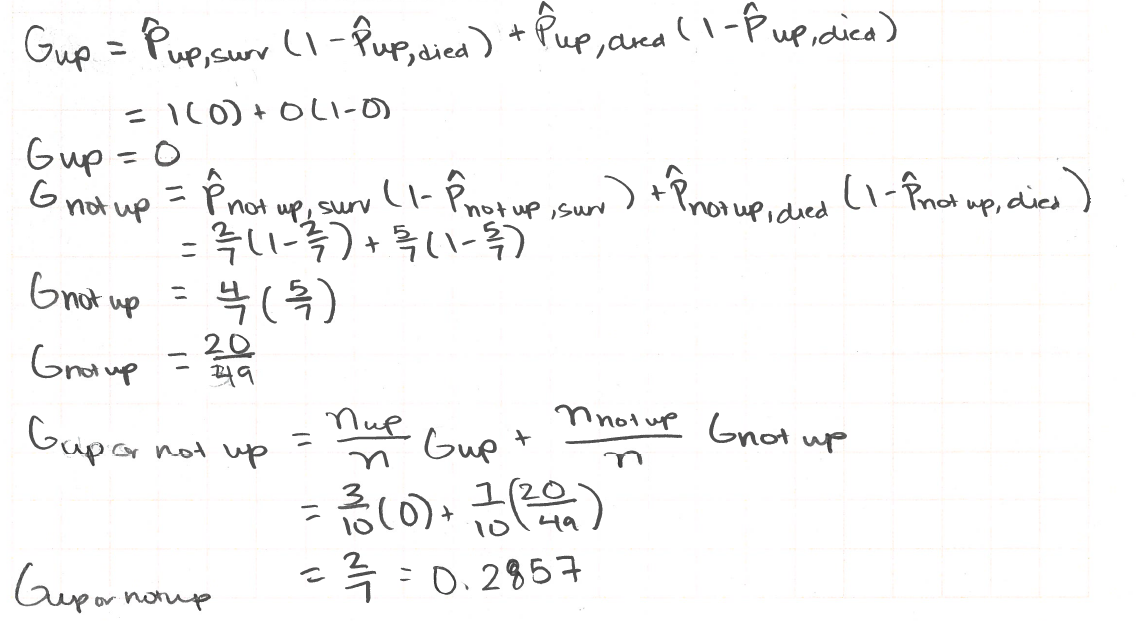 Gup = P̂up,surv (1-P̂up,died) + P̂up,died (1-P̂up,died)
= 1(0) + 0(1-0)
Gup = 0
Gnot up = P̂not up, surv (1- P̂not up, surv) + P̂not up, died (1-P̂not up, died)
= 2/7(1-2/7) + 5/7(1-5/7)
Gnot up = 4/7 (5/7)
Gnot up = 20/49
Gup or not up = nup/n Gup + nnot up/n Gnot up
= 3/10(0) + 7/10(20/49)
Gup or not up = 2/7 = 0.2857